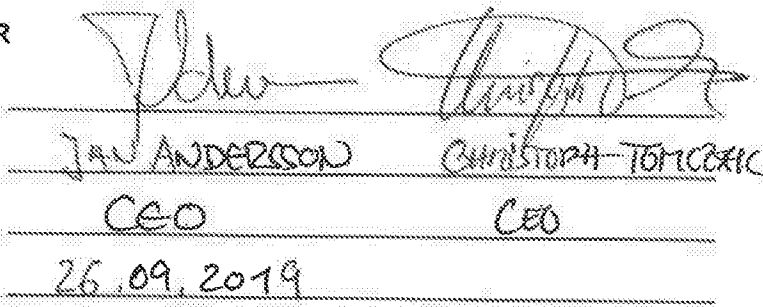 R
JAN ANDERSSON CHRISTOPH TOMCZAK
CEO CEO
26.09.2019